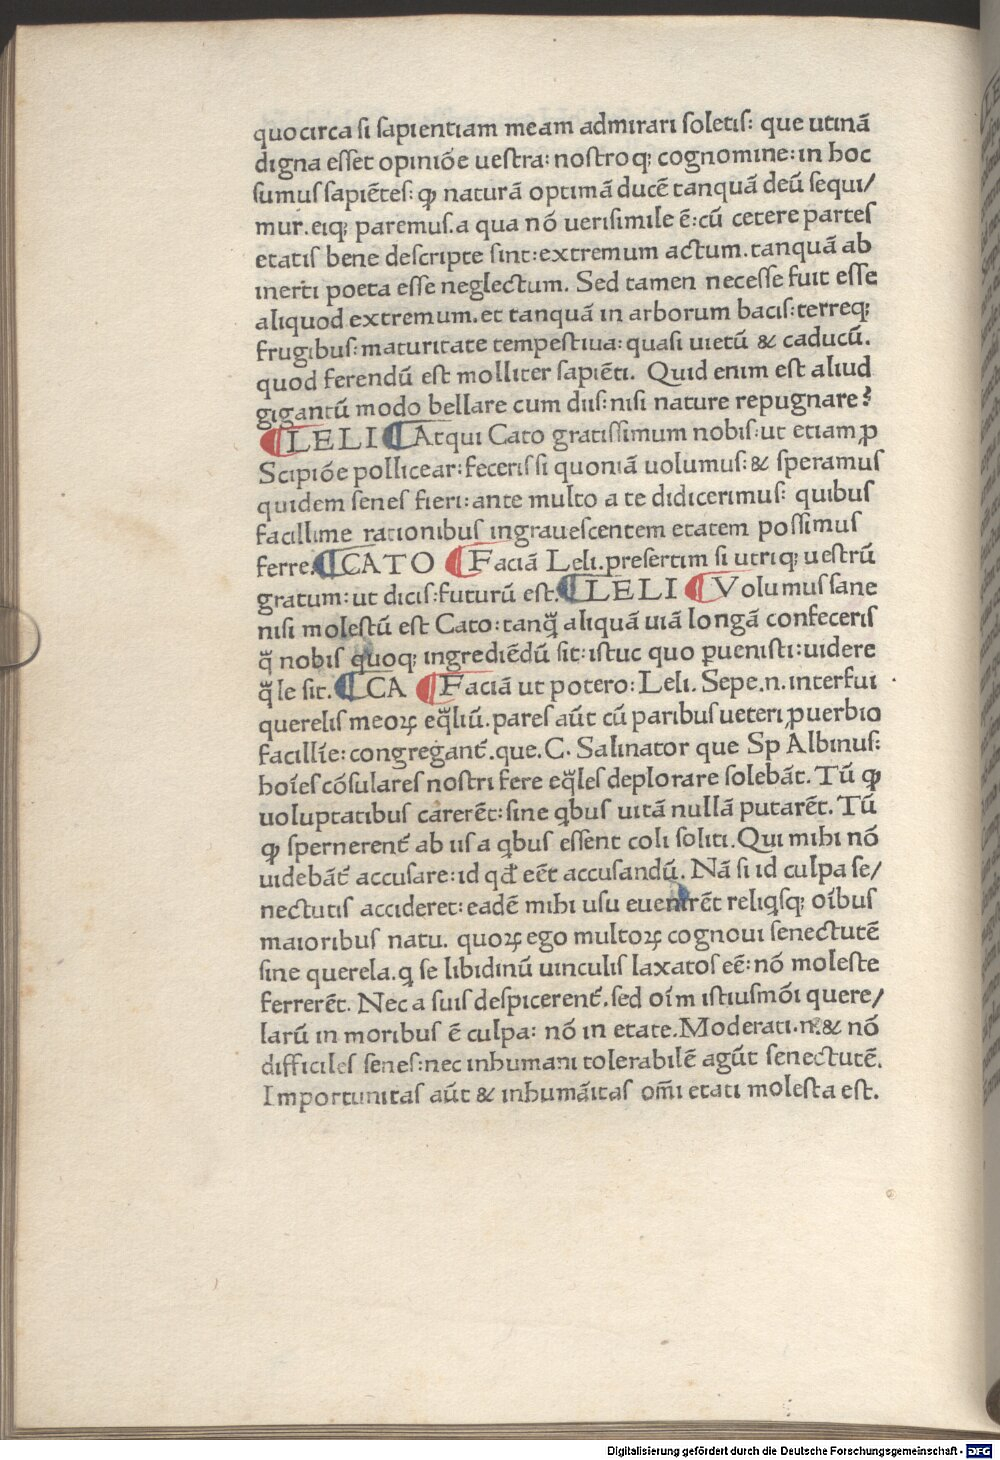 quocirca si sapientiam meam admirari soletis: que utinã
digna esset opiniõe uestra: nostroq; cognomine: in hoc
sumus sapiẽtes: ꝙ naturã optimã ducẽ tanquã deũ sequi/
mur. eiq; paremus. a qua nõ uerisimile ẽ: cũ cetere partes
etatis bene descripte sint: extremum actum. tanquã ab
inerti poeta esse neglectum. Sed tamen necesse fuit esse
aliquod extremum. et tanquã in arborum bacis: terreq;
frugibus: maturitate tempestiua: quasi uietũ & caducũ.
quod ferendũ est molliter sapiẽti. Quid enim est aliud
gigantũ modo bellare cum diis: nisi nature repugnare?
¶ LELI ¶ Atqui Cato gratissimum nobis: ut etiam ꝓ
Scipiõe pollicear: feceris si quoniã uolumus: & speramus
quidem senes fieri: ante multo a te didicerimus: quibus
facillime rationibus ingrauescentem etatem possimus
ferre. ¶ CATO ¶ Faciã Leli. presertim si utriq; uestrũ
gratum: ut dicis: futurũ est. ¶ LELI ¶ Volumus sane
nisi molestũ est Cato: tanq̃ aliquã uiã longã confeceris
q̃ nobis quoq; ingrediẽdũ sit: istuc quo ꝑuenisti: uidere
q̃le sit. ¶ CA ¶ Faciã ut potero: Leli. Sepe .n. interfui
querelis meoꝝ eq̃liũ. pares aũt cũ paribus ueteri ꝓuerbio
facillĩe: congregant᷑. que. C. Salinator que Sp Albinus:
hoĩes cõsulares nostri fere eq̃les deplorare solebãt. Tũ ꝙ
uoluptatibus carerẽt: sine qbus uitã nullã putarẽt. Tũ
ꝙ spernerent᷑ ab iis a qbus essent coli soliti. Qui mihi nõ
uidebãt᷑ accusare: id qđ eẽt accusandũ. Nã si id culpa se/
nectutis accideret: eadẽ mihi usu euenirẽt reliqsq; oĩbus
maioribus natu. quoꝝ ego multoꝝ cognoui senectutẽ
sine querela. q se libidinũ uinculis laxatos eẽ: nõ moleste
ferrerẽt. Nec a suis despicerent᷑. sed oĩm istiusmõi quere/
larũ in moribus ẽ culpa: nõ in etate. Moderati .n. & nõ
difficiles senes: nec inhumani tolerabilẽ agũt senectutẽ.
Importunitas aũt & inhumãitas om̃i etati molesta est.
Digitalisierung gefördert durch die Deutsche Forschungsgemeinschaft - DFG